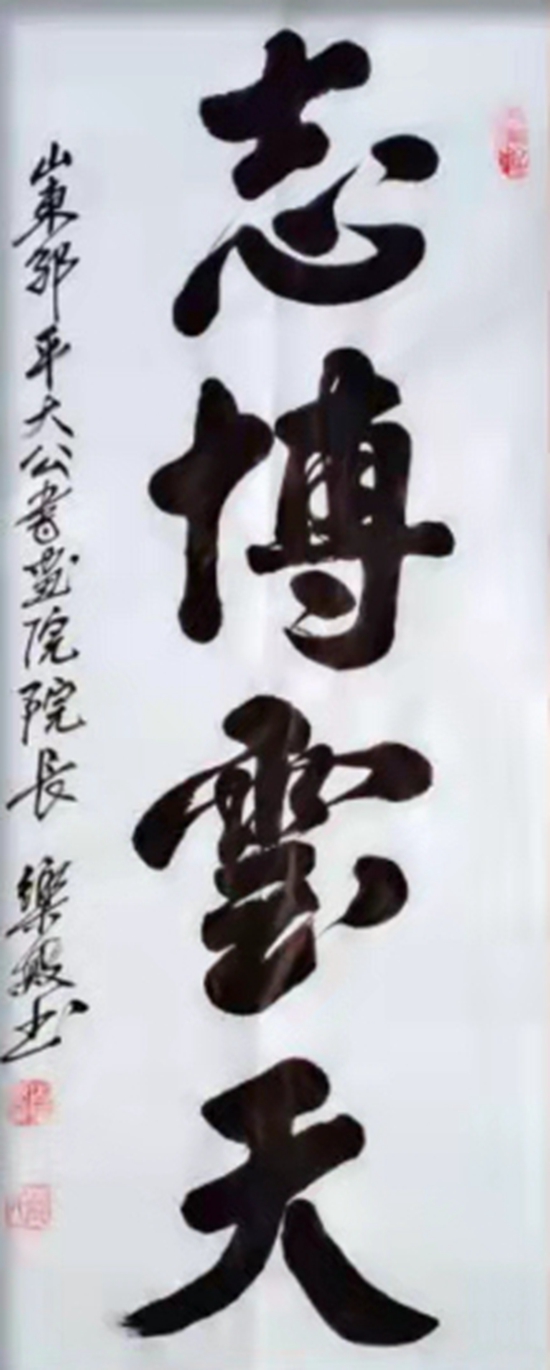 志博雲天
山東邹平大公書畫院院長 樂毅书